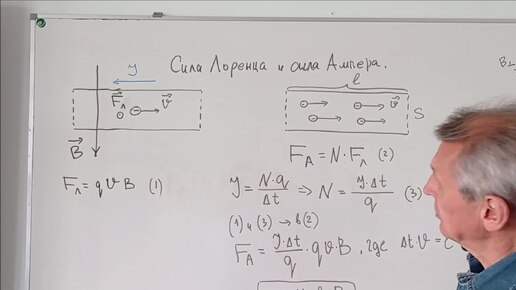 Сила Лоренца и сила Ампера.
B⊥
I
l
F⃗л
v⃗
v⃗
S
B⃗
Fл = qvB (1)
F_A = N·Fл (2)
I = N·q/Δt => N = I·Δt/q (3)
(1) и (3) → в (2)
F_A = I·Δt/q · q·v·B, где Δt·v = l